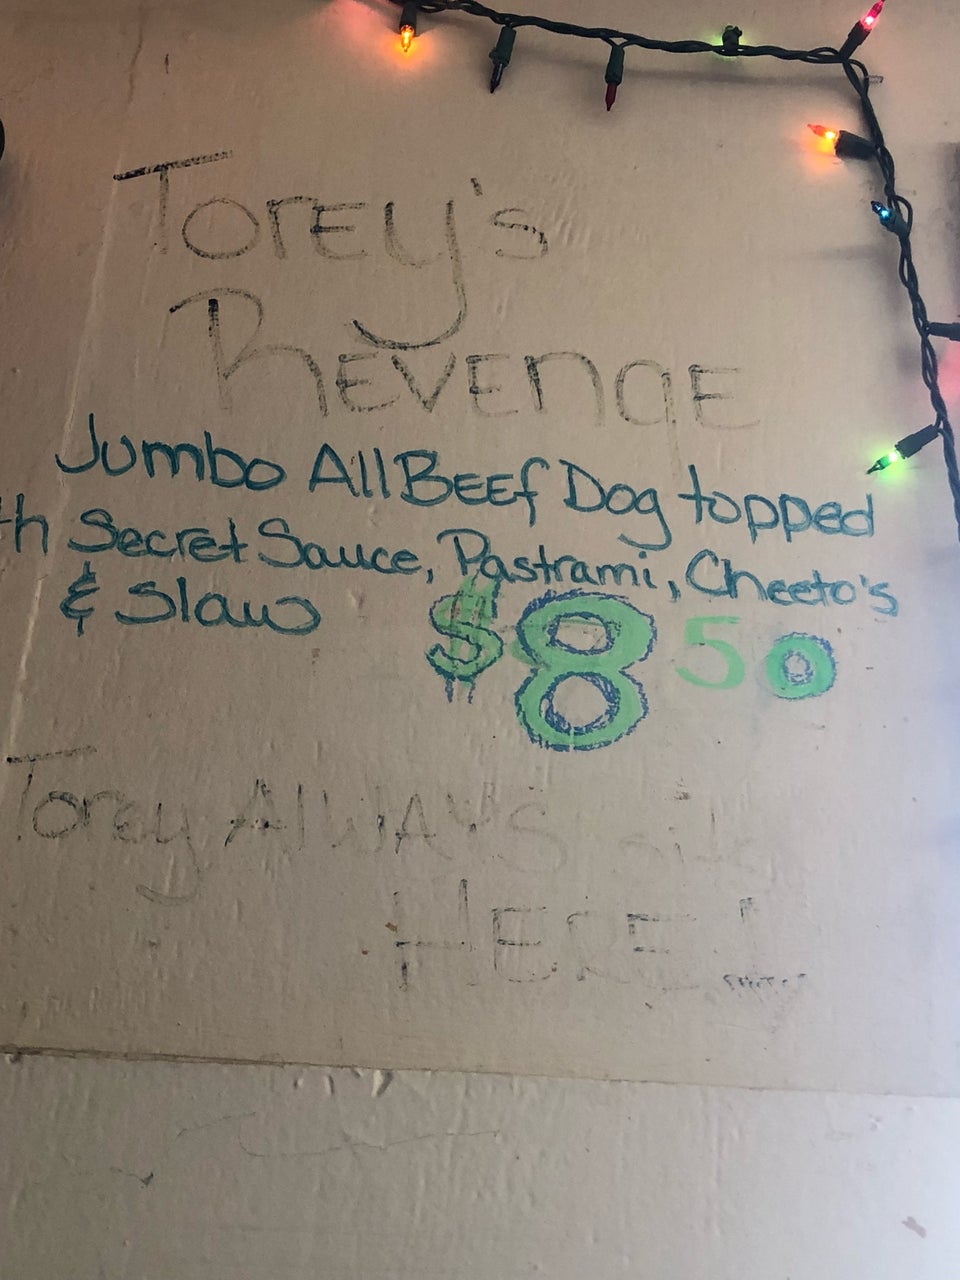 Torey's
Revenge
Jumbo All Beef Dog topped
th Secret Sauce, Pastrami, Cheeto's
& Slaw $8 50
Torey AlWAYS sits
HERE!